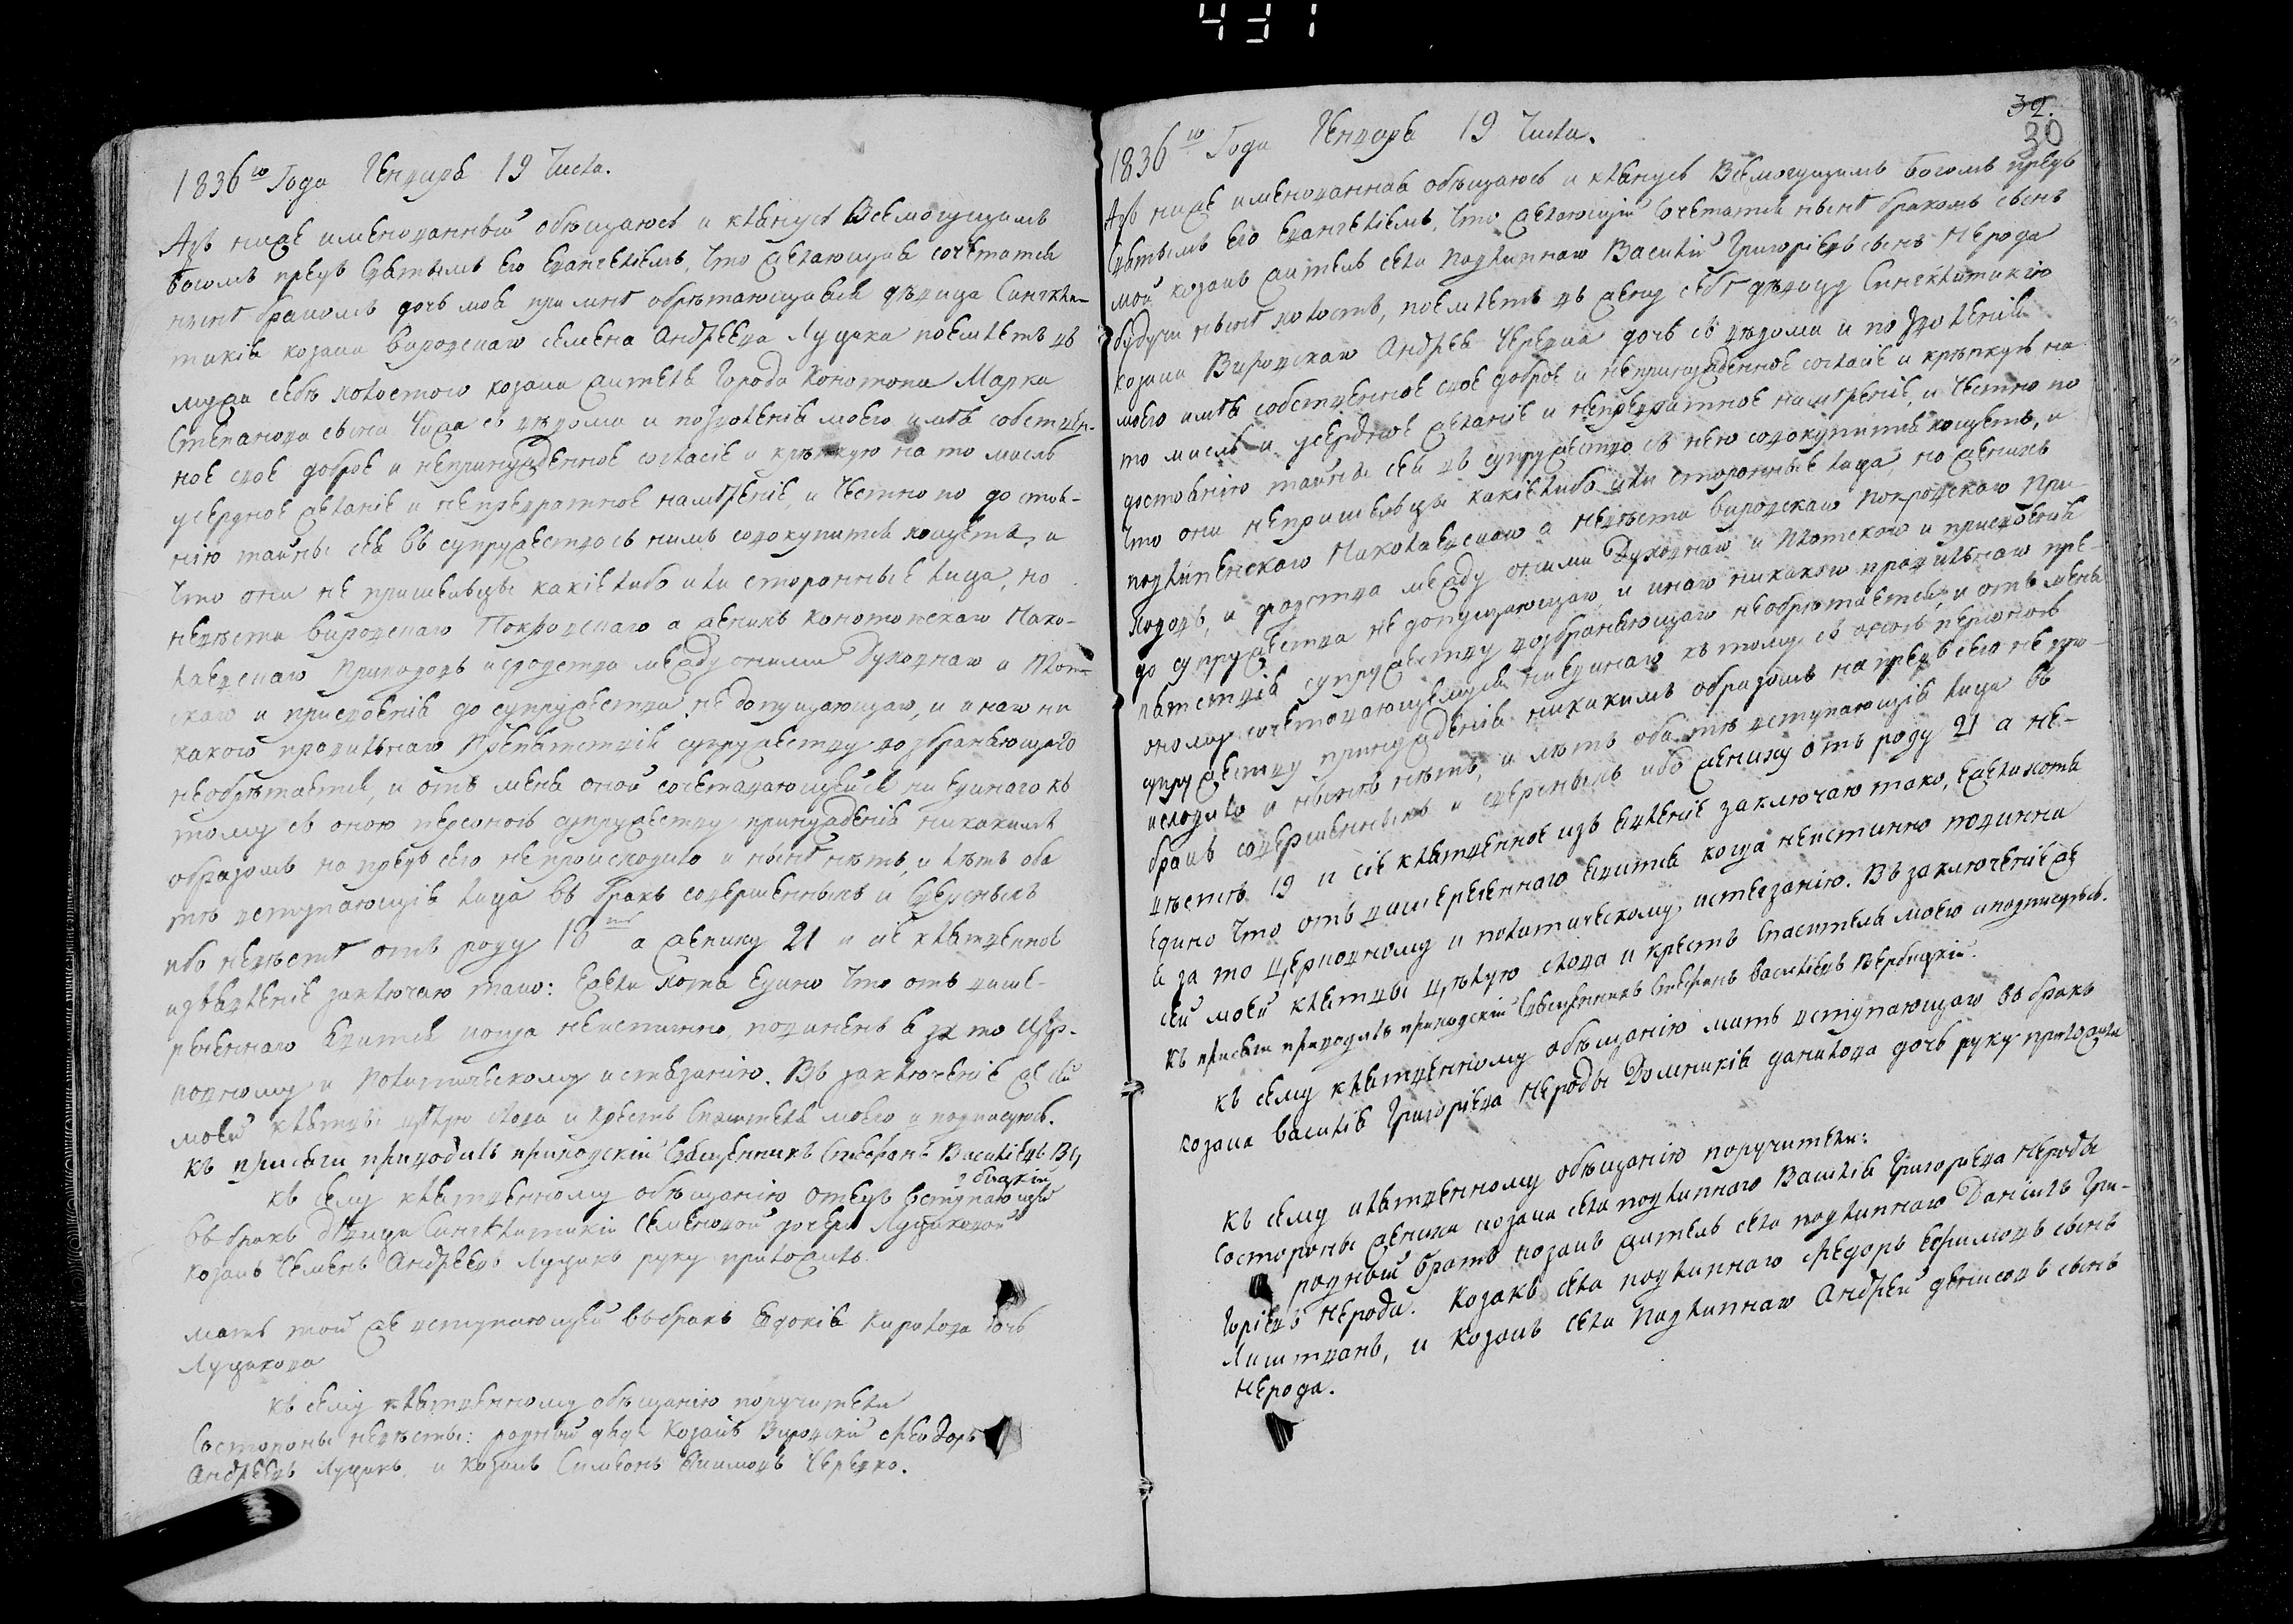 431
1836го Года Генваря 19 Числа.
Азъ ниже именованный обѣщаюсь и клянусь Всемогущимъ
Богомъ предъ Святымъ его Евангелиемъ, что желающая сочетатся
нынѣ бракомъ дочь моя при мнѣ обрѣтающаяся дѣвица Сингкли-
тикія козака вировскаго Семена Андреева Луцика поемлетъ въ
мужа себѣ холостого козака жителя города Конотопа Марка
Степанова сына Чижа съ вѣдома и позволенія моего имѣя собствен-
ное свое доброе и непринужденное согласіе и крѣпкую на то мысль
усердное желаніе и непревратное намѣреніе, и честно по достоя-
нію тайны сея въ супружество съ нимъ совокупится хощетъ, и
что они не пришельцы какіе либо или сторонные лица, но
невѣста вировскаго Покровскаго а женихъ конотопскаго Нико-
лаевскаго Приходовъ и сродства между оними Духовнаго и Плот-
скаго и присвоенія до супружества не допущающаго, и инаго ни
какого правильнаго Препятствія супружеству возбраняющаго
необрѣтается, и отъ мене оной сочетавающейся ни единаго къ
тому съ оною персоною супружеству принужденія никакимъ
образомъ на предъ сего не происходило и нынѣ нѣтъ, и лѣтъ оба
тѣ вступающія лица въ бракъ совершенныхъ и Сверсныхъ
ибо невѣстѣ отъ роду 18ть а жениху 21 и сіе клятвенное
изъявленіе заключаю тако: Ежели хотя едино что отъ выше-
реченнаго явится когда неистинно, повиненъ я за то Цер-
ковному и Политическому истязанію. Въ заключеніе же сей
моей клятвы цѣлую слова и крестъ Спасителя моего и подписуюсь.
Къ присяги приводилъ приходскій Священникъ Стефанъ Василіевъ Ве
рбицкій
Къ сему клятвенному обѣщанію отецъ вступающія
въ бракъ дѣвици Сингклитикіи Семеновой дочери Луциковой
Козакъ Семенъ Андреевъ Луцикъ руку приложилъ.
мать той же вступающей въ бракъ Евдокія Кирилова дочь
Луцикова
Къ сему клятвенному обѣщанію поручители
Состороны невѣсты: родный дядя Козакъ Вировскій Феодоръ
Андреевъ Луцикъ и Козакъ Симеонъ Якимовъ Черевко.
32.
30
1836го Года Генваря 19 Числа.
Азъ ниже именованная обѣщаюсь и клянусь Всемогущимъ Богомъ предъ
Святымъ его Евангеліемъ, что желающій сочетатся нынѣ бракомъ сынъ
мой козакъ житель села Подлипнаго Василій Григоріевъ сынъ Нерода
будучи нынѣ холостъ, поемлетъ въ жену себѣ дѣвицу Сингклитикію
козака Вировскаго Андрея Черевка дочь съ вѣдома и позволенія
моего имѣя собственное свое доброе и непринужденное согласіе и крѣпкую на
то мысль и усердное желаніе и непревратное намѣреніе, и честно по
достоянію тайны сея въ супружество съ нею совокупится хощетъ, и
что они непришельцы какіе либо или сторонные лица, но женихъ
подлипенскаго Николаевскаго а невѣста вировскаго Покровскаго При-
ходовъ, и сродства между оними Духовнаго и Плотскаго и присвоенія
до супружества не допущающаго и инаго никакого правильнаго пре-
пятствія супружеству возбраняющаго необрѣтается, и отъ мене
оному сочетовающемуся ниединаго къ тому съ оною персоною
супружеству принужденія никакимъ образомъ на предъ сего не про-
исходило и нынѣ нѣтъ, и лѣтъ оба тѣ вступающія лица въ
бракъ совершенныхъ и сверсныхъ ибо жениху отъ роду 21 а не-
вѣстѣ 19 и сіе клятвенное изъявленіе заключаю тако, ежели хотя
едино что отъ вишереченнаго явится когда неистинно повинна
я за то церковному и политическому истязанію. Въ заключеніе же
сей моей клятвы цѣлую слова и крестъ Спасителя моего и подписуюсь.
Къ присяги приводилъ приходскій Священникъ Стефанъ Василіевъ Вербицкій.
Къ сему клятвенному обѣщанію мать вступающаго въ бракъ
козака Василія Григоріева Нероды Домникія данилова дочь руку приложила
Къ сему клятвенному обѣщанію поручители:
Состороны жениха козака села подлипнаго Василія Григоріева Нероды
родный братъ козакъ житель села подлипнаго Даніилъ Гри-
горіевъ Нерода. Козакъ села подлипнаго Федоръ Ефимовъ сынъ
Лиштванъ, и Козакъ села Подлипнаго Андрей Денисовъ сынъ
Нерода.